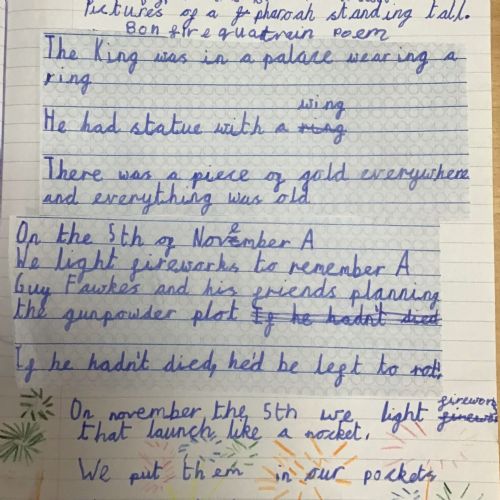 Pictures of a pharoah standing tall.
Bonfire quatrain poem
The King was in a palace wearing a
ring
wing
He had statue with a ring
There was a piece of gold everywhere
and everything was old
On the 5th of November A
We light fireworks to remember A
Guy Fawkes and his friends planning
the gunpowder plot If he hadn't died
If he hadn't died, he'd be left to rot.
On november the 5th we light firework
that launch like a rocket.
We put them in our pockets